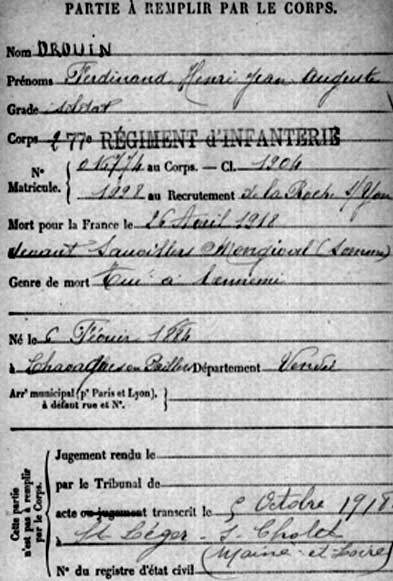 PARTIE À REMPLIR PAR LE CORPS.
Nom DROUIN
Prénoms Ferdinand Henri Jean Auguste
Grade soldat
Corps 277e RÉGIMENT d'INFANTERIE
N° Matricule. { 016774 au Corps. — Cl. 1904
1998 au Recrutement de la Roche s/Yon
Mort pour la France le 26 Avril 1918
devant Sauvillers Mongival (Somme)
Genre de mort Tué à l'ennemi
Né le 6 Février 1884
à Chavagnes en Paillers Département Vendée
Arrt municipal (pr Paris et Lyon), à défaut rue et N°. }
Cette partie n'est pas à remplir par le Corps.
Jugement rendu le
par le Tribunal de
acte ou jugement transcrit le 5 Octobre 1918
à St Léger - s - Cholet
(Maine-et-Loire)
N° du registre d'état civil